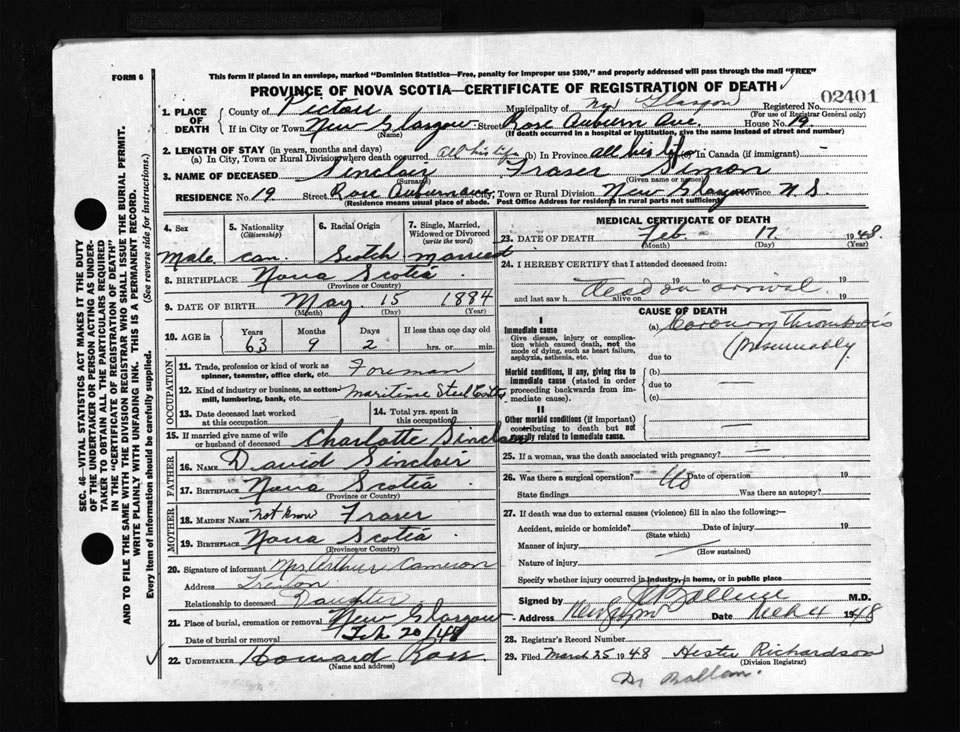 FORM 6
This form if placed in an envelope, marked "Dominion Statistics—Free, penalty for improper use $300," and properly addressed will pass through the mail "FREE"
PROVINCE OF NOVA SCOTIA—CERTIFICATE OF REGISTRATION OF DEATH
02401
1. PLACE OF DEATH
County of Pictou Municipality of New Glasgow Registered No.
(For use of Registrar General only)
If in City or Town New Glasgow Street Rose Auburn Ave. House No. 19
(Name) (If death occurred in a hospital or institution, give the name instead of street and number)
2. LENGTH OF STAY (in years, months and days)
(a) In City, Town or Rural Division where death occurred all his life (b) In Province all his life (c) In Canada (if immigrant)
3. NAME OF DECEASED Sinclair Fraser Simon
(Surname) (Given name or names)
RESIDENCE No. 19 Street Rose Auburn ave City, Town or Rural Division New Glasgow Province N.S.
(Residence means usual place of abode. Post Office Address for residents in rural parts not sufficient)
4. Sex
Male
5. Nationality
(Citizenship)
Can.
6. Racial Origin
Scotch
7. Single, Married, Widowed or Divorced
(write the word)
Married
8. BIRTHPLACE Nova Scotia
(Province or Country)
9. DATE OF BIRTH May 15 1884
(Month) (Day) (Year)
10. AGE in Years Months Days If less than one day old
63 9 2 hrs. or min.
OCCUPATION
11. Trade, profession or kind of work as spinner, teamster, office clerk, etc. Foreman
12. Kind of industry or business, as cotton-mill, lumbering, bank, etc. Maritime Steel
13. Date deceased last worked at this occupation
14. Total yrs. spent in this occupation
15. If married give name of wife or husband of deceased Charlotte Sinclair
FATHER
16. NAME David Sinclair
17. BIRTHPLACE Nova Scotia
(Province or Country)
MOTHER
18. MAIDEN NAME not know Fraser
19. BIRTHPLACE Nova Scotia
(Province or Country)
20. Signature of informant Mrs. Arthur Cameron
Address Trenton
Relationship to deceased Daughter
21. Place of burial, cremation or removal New Glasgow
Date of burial or removal Feb 20/48
22. UNDERTAKER Howard Ross
(Name and address)
MEDICAL CERTIFICATE OF DEATH
23. DATE OF DEATH Feb. 17 1948
(Month) (Day) (Year)
24. I HEREBY CERTIFY that I attended deceased from:
19 to 19
and last saw h alive on 19
dead on arrival.
CAUSE OF DEATH
I
Immediate cause
Give disease, injury or complication which caused death, not the mode of dying, such as heart failure, asphyxia, asthenia, etc.
(a) Coronary Thrombosis
due to (presumably
Morbid conditions, if any, giving rise to immediate cause (stated in order proceeding backwards from immediate cause).
(b)
due to
(c)
II
Other morbid conditions (if important) contributing to death but not causally related to immediate cause.
25. If a woman, was the death associated with pregnancy?
26. Was there a surgical operation? No Date of operation 19
State findings Was there an autopsy?
27. If death was due to external causes (violence) fill in also the following:—
Accident, suicide or homicide? Date of injury 19
(State which)
Manner of injury
(How sustained)
Nature of injury
Specify whether injury occurred in industry, in home, or in public place
Signed by M.D.
Address Date 1948
28. Registrar's Record Number
29. Filed March 25 1948 Hester Richardson
(Division Registrar)
SEC. 46—VITAL STATISTICS ACT MAKES IT THE DUTY
OF THE UNDERTAKER OR PERSON ACTING AS UNDER-
TAKER TO OBTAIN ALL THE PARTICULARS REQUIRED
IN THE "CERTIFICATE OF REGISTRATION OF DEATH"
AND TO FILE THE SAME WITH THE DIVISION REGISTRAR WHO SHALL ISSUE THE BURIAL PERMIT.
WRITE PLAINLY WITH UNFADING INK. THIS IS A PERMANENT RECORD.
Every item of information should be carefully supplied. (See reverse side for instructions.)